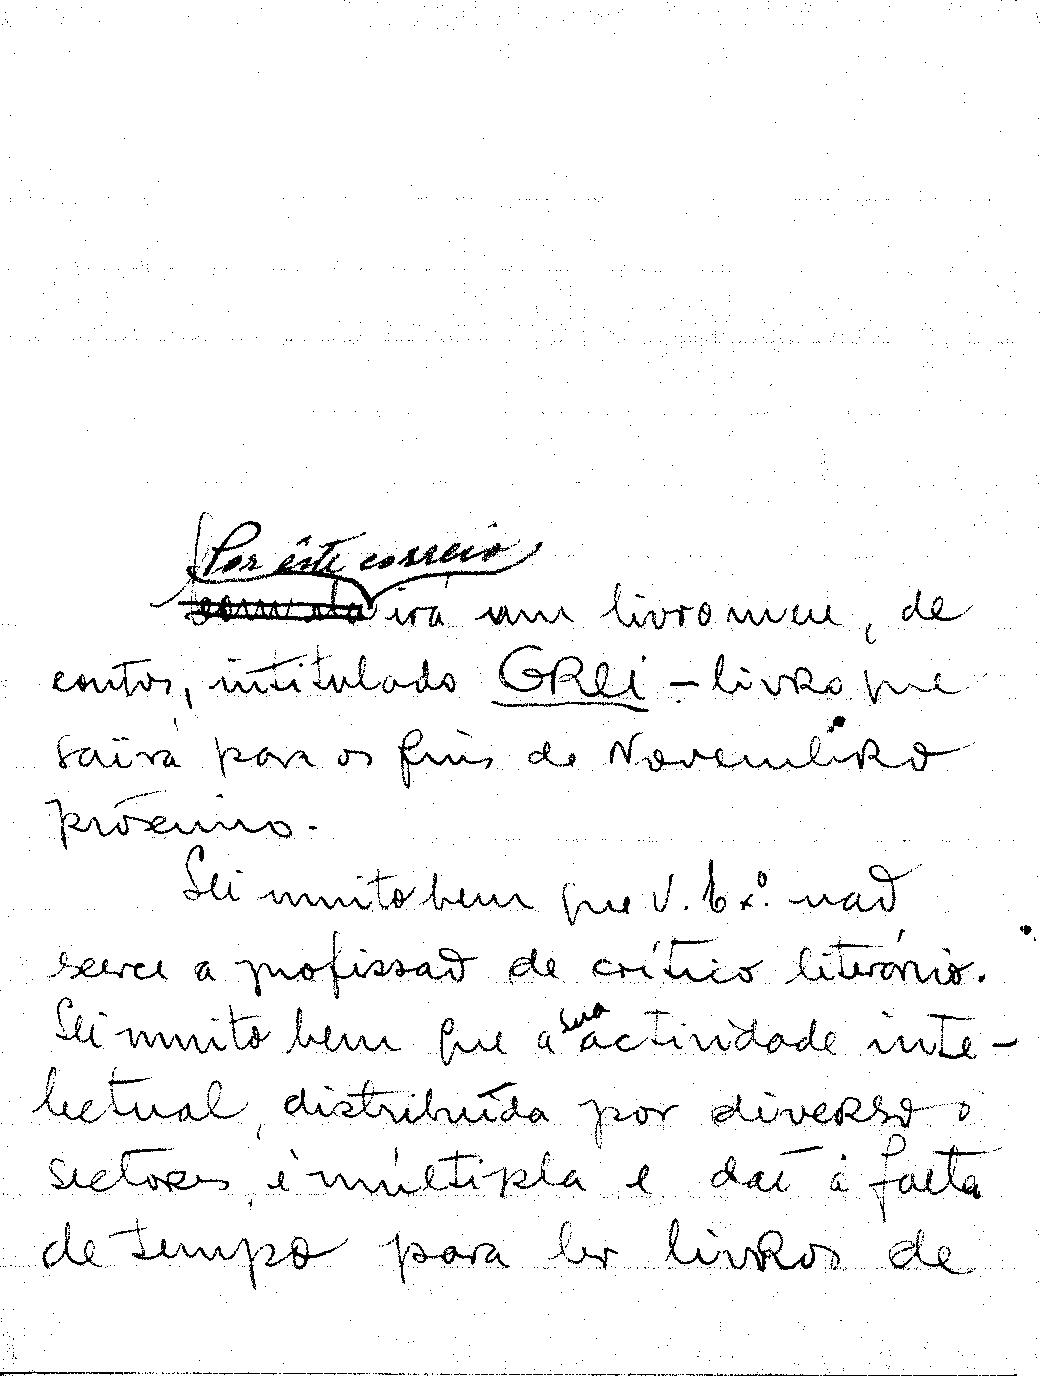 Por êste correio
irá um livro meu, de
contos, intitulado GREI - livro que
saïrá para os fins de Novembro
próximo.
Sei muito bem que V. Ex.º não
exerce a profissão de crítico literário.
Sei muito bem que a sua actividade inte-
lectual, distribuída por diversos
sectores, é múltipla e daí à falta
de tempo para ler livros de